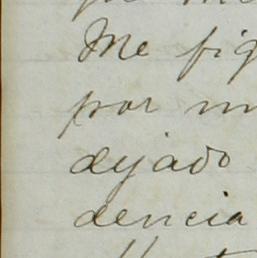 Me fig
por m
dejado
dencia